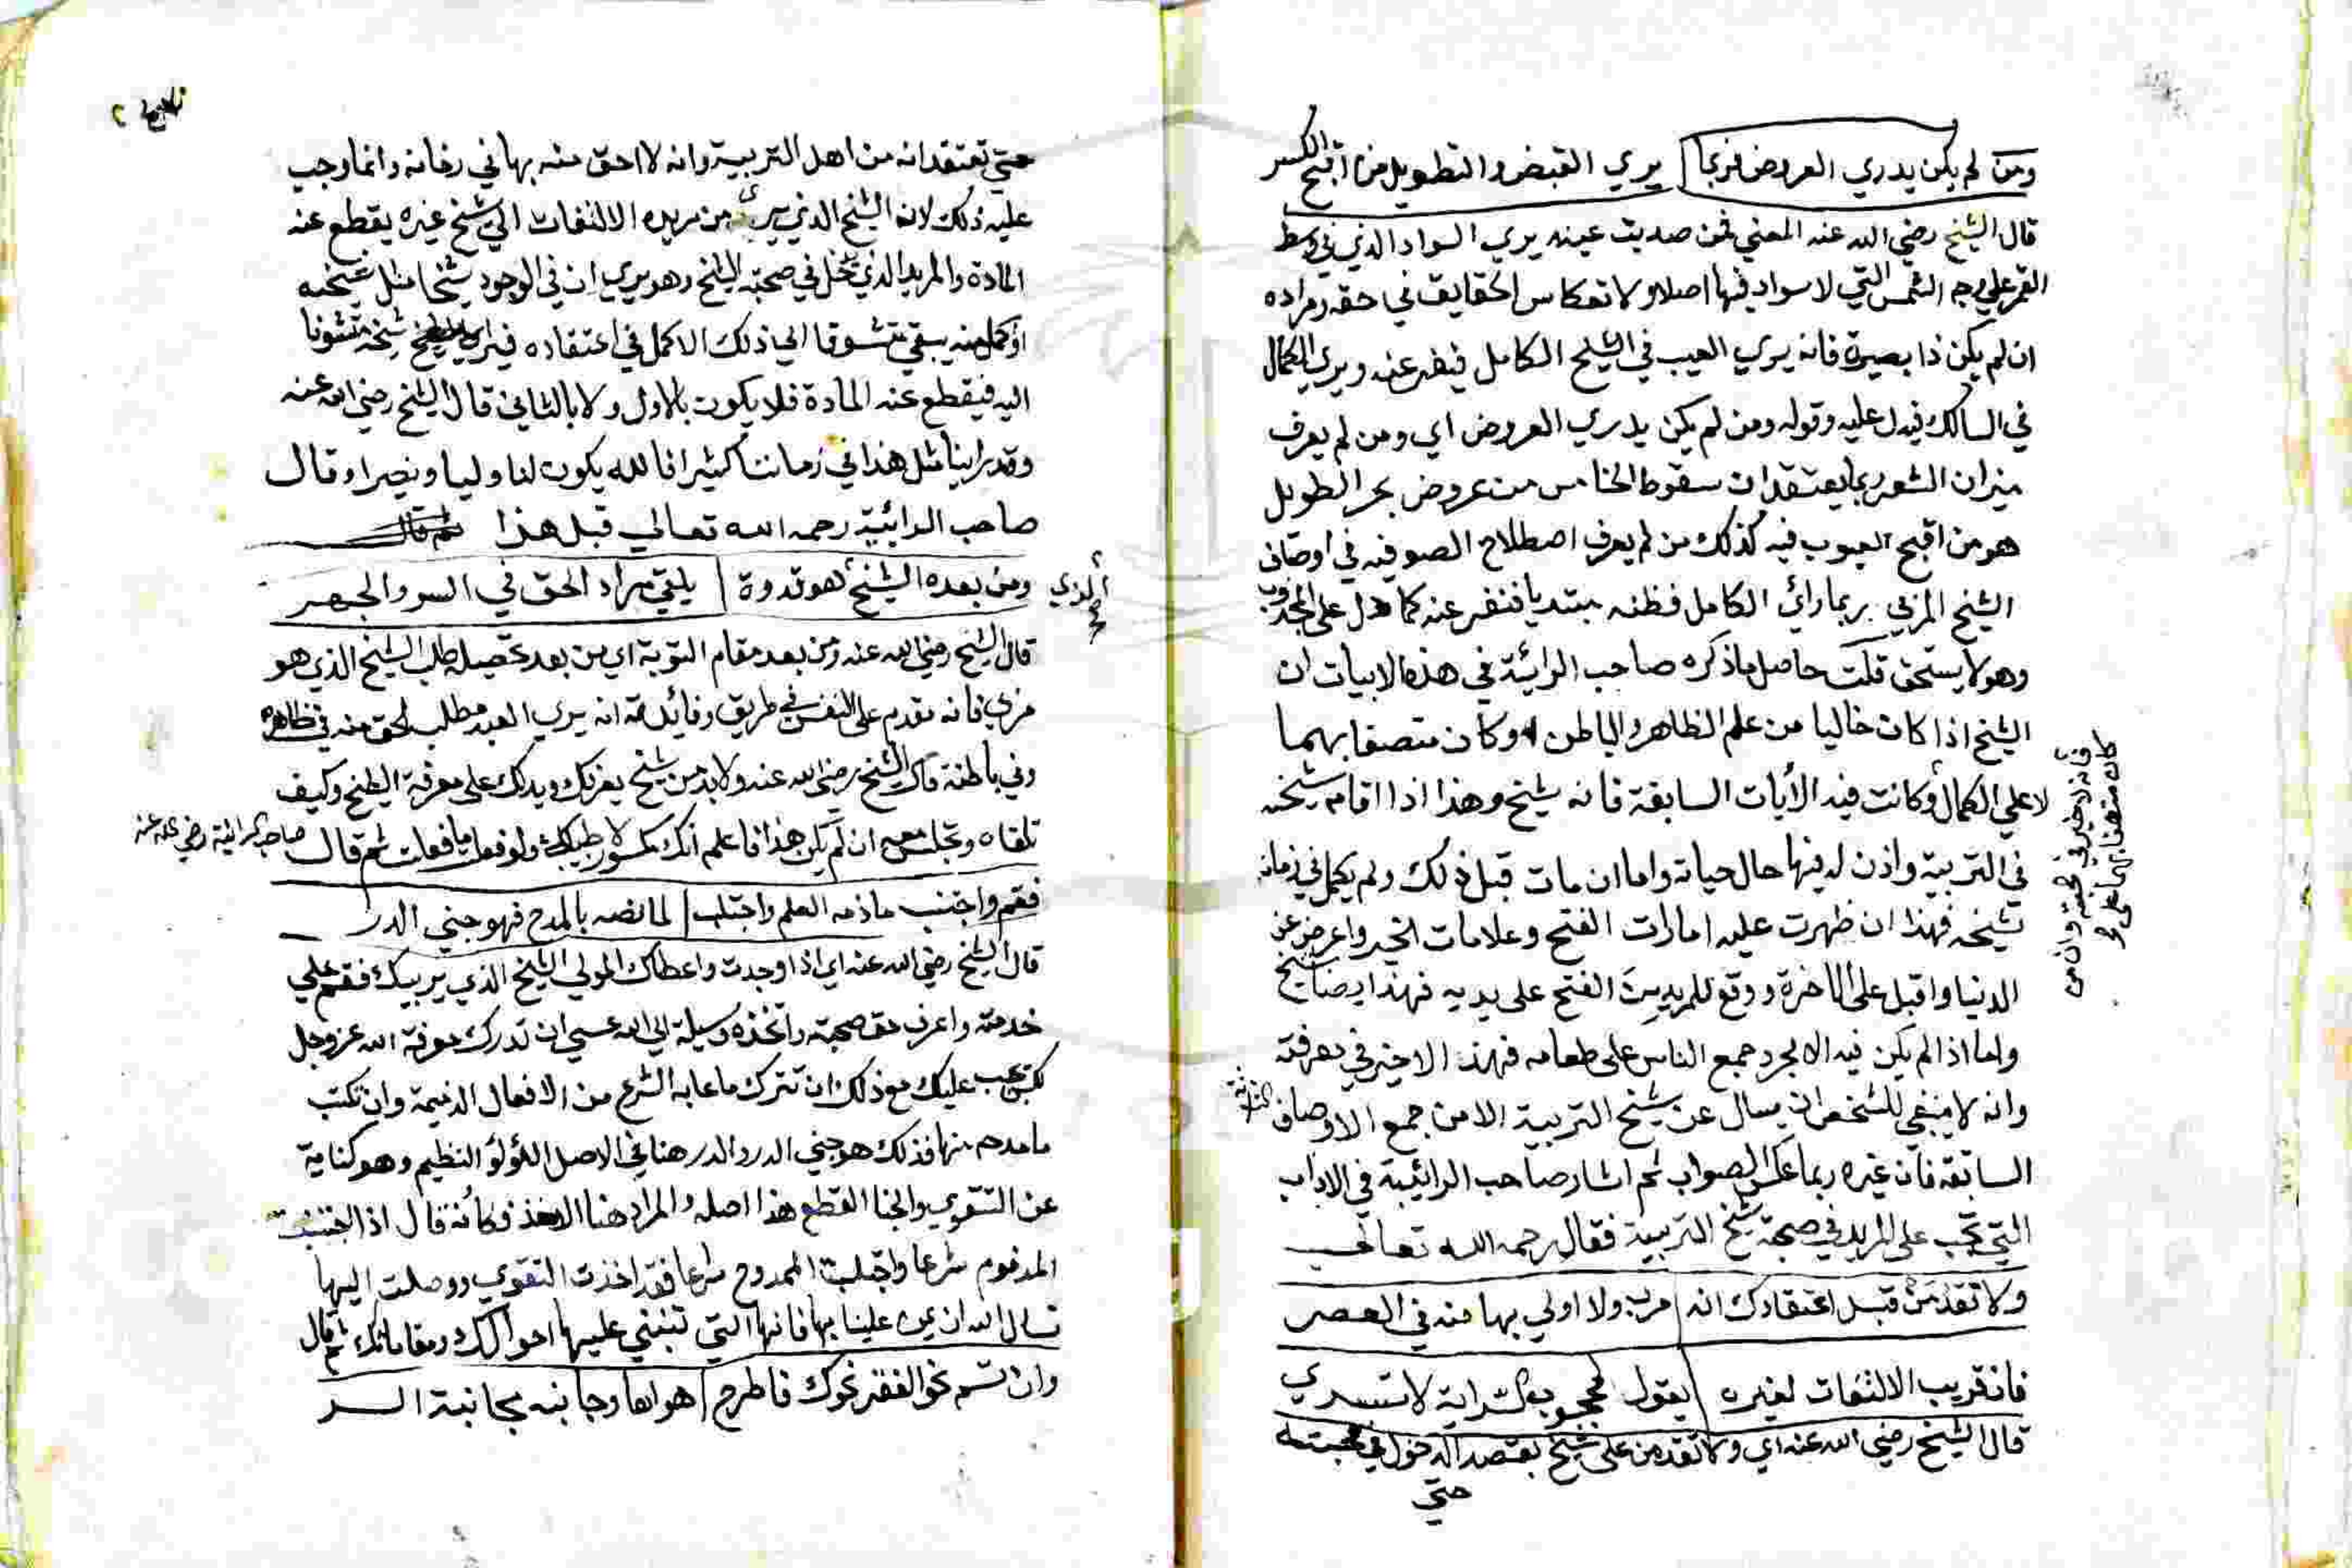 ومن لم يكن يدري العروض فربما يري القبض والتطويل من اقبح الكسر
قال الشيخ رضي الله عنه المعني فمن صديت عينه يري السواد الذي في وسط
القمر علي وجه الشمس التي لا سواد فيها اصلا ولا تعكاس الحقايق في حقه ومراده
ان لم يكن ذا بصيرة فانه يري العيب في الشيخ الكامل فينفر عنه ويري الكمال
في السالك فيدل عليه وقوله ومن لم يكن يدري العروض اي ومن لم يعرف
ميزان الشعر ربما يعتقد ان سقوط الخامس من عروض بحر الطويل
هو من اقبح العيوب فيه كذلك من لم يعرف اصطلاح الصوفيه في اوصاف
الشيخ المربي ربما رائ الكامل فظنه مبتديا فنفر عنه كما دل على المجذوب
وهو لا يستحق قلت حاصل ما ذكره صاحب الرائية في هذه الابيات ان
الشيخ اذا كان خاليا من علم الظاهر والباطن او كان متصفا بهما
لا علي الكمال وكانت فيه الأيات السابقة فانه شيخ وهذا اذا اقامه شيخه
في التربية واذن له فيها حال حياته واما ان مات قبل ذلك ولم يكمل في زمانه
شيخه فهذا ان ظهرت عليه امارات الفتح وعلامات الخير واعرض عن
الدنيا واقبل على الاخرة ووقع للمريدين الفتح على يديه فهذا ايضا شيخ
واما اذا لم يكن فيه الا مجرد جمع الناس على طعامه فهذا لا خير في معرفته
وانه لا ينبغي للشخص ان يسال عن شيخ التربية الا من جمع الاوصاف الثلاثة
السابقه فان غيره ربما عكس الصواب ثم اشار صاحب الرائية في الاداب
التي تجب على المريد في صحبة شيخ التربية فقال رحمه الله تعالي
ولا تقدمن قبل اعتقادك انه مرب ولا اولي بها منه في العصر
فان رقيب الالتفات لغيره يقول لمحبوب السراية لا تسري
قال الشيخ رضي الله عنه اي ولا تقدمن على شيخ بقصد الدخول في صحبته
حتي
فانه لا خير في صحبته وان من
كان متصفا بهما على
حتي تعتقد انه من اهل التربية وانه لا احق منه بها في زمانه وانما وجب
عليه ذلك لان الشيخ الذي يري من مريده الالتفات الي شيخ غيره يقطع عنه
المادة والمريد الذي دخل في صحبة الشيخ وهو يري ان في الوجود شيخا مثل شيخه
او اكمل منه يبقي متشوقا الي ذلك الاكمل في اعتقاده فيراه شيخه متشوفا
اليه فيقطع عنه المادة فلا يكون بالاول ولا بالثاني قال الشيخ رضي الله عنه
وقد راينا مثل هذا في زماننا كثيرا فالله يكون لنا وليا ونصيرا وقال
صاحب الرائية رحمه الله تعالي قبل هذا
ومن بعده الشيخ الذي هو قدوة يلقي مراد الحق في السر والجهر
قال الشيخ رضي الله عنه ومن بعد مقام التوبة اي من بعد تحصيله طلب الشيخ الذي هو
مربي فانه مقدم على النفس في طريق وفائدته انه يري العبد مطلب الحق منه في ظاهره
وفي باطنه قال الشيخ رضي الله عنه ولا بد من شيخ يعرفك ويدلك على معرفة الشيخ وكيف
تلقاه وتجلس معه ان لم يكن هذا فاعلم انك مكسور لا طبيب لك ولو فعلت ما فعلت ثم قال صاحب الرائية رضي الله عنه
فقم واجتنب ما ذمه العلم واجتلب لما نصه بالمدح فهو جني الدر
قال الشيخ رضي الله عنه اي اذا وجدت واعطاك المولي الشيخ الذي يربيك فقم علي
خدمته واعرف حق صحبته واتخذه وسيلة الي الله عسي ان تدرك معرفة الله عز وجل
لكن يجب عليك مع ذلك ان تترك ما عابه الشرع من الافعال الذميمة وان تكتسب
ما مدح منها فذلك هو جني الدر والدر هنا في الاصل اللؤلؤ النظيم وهو كناية
عن التقوي والجنا القطع هذا اصله والمراد هنا الاخذ فكأنه قال اذا اجتنبت
المذموم شرعا واجتلبت الممدوح شرعا فقد اخذت التقوي ووصلت اليها
نسال الله ان يمن علينا بها فانها التي تنبني عليها احوالك ومقاماتك ثم قال
وان تسم نحو الفقر نحوك فاطرح هواها وجانبه مجانبة الشر